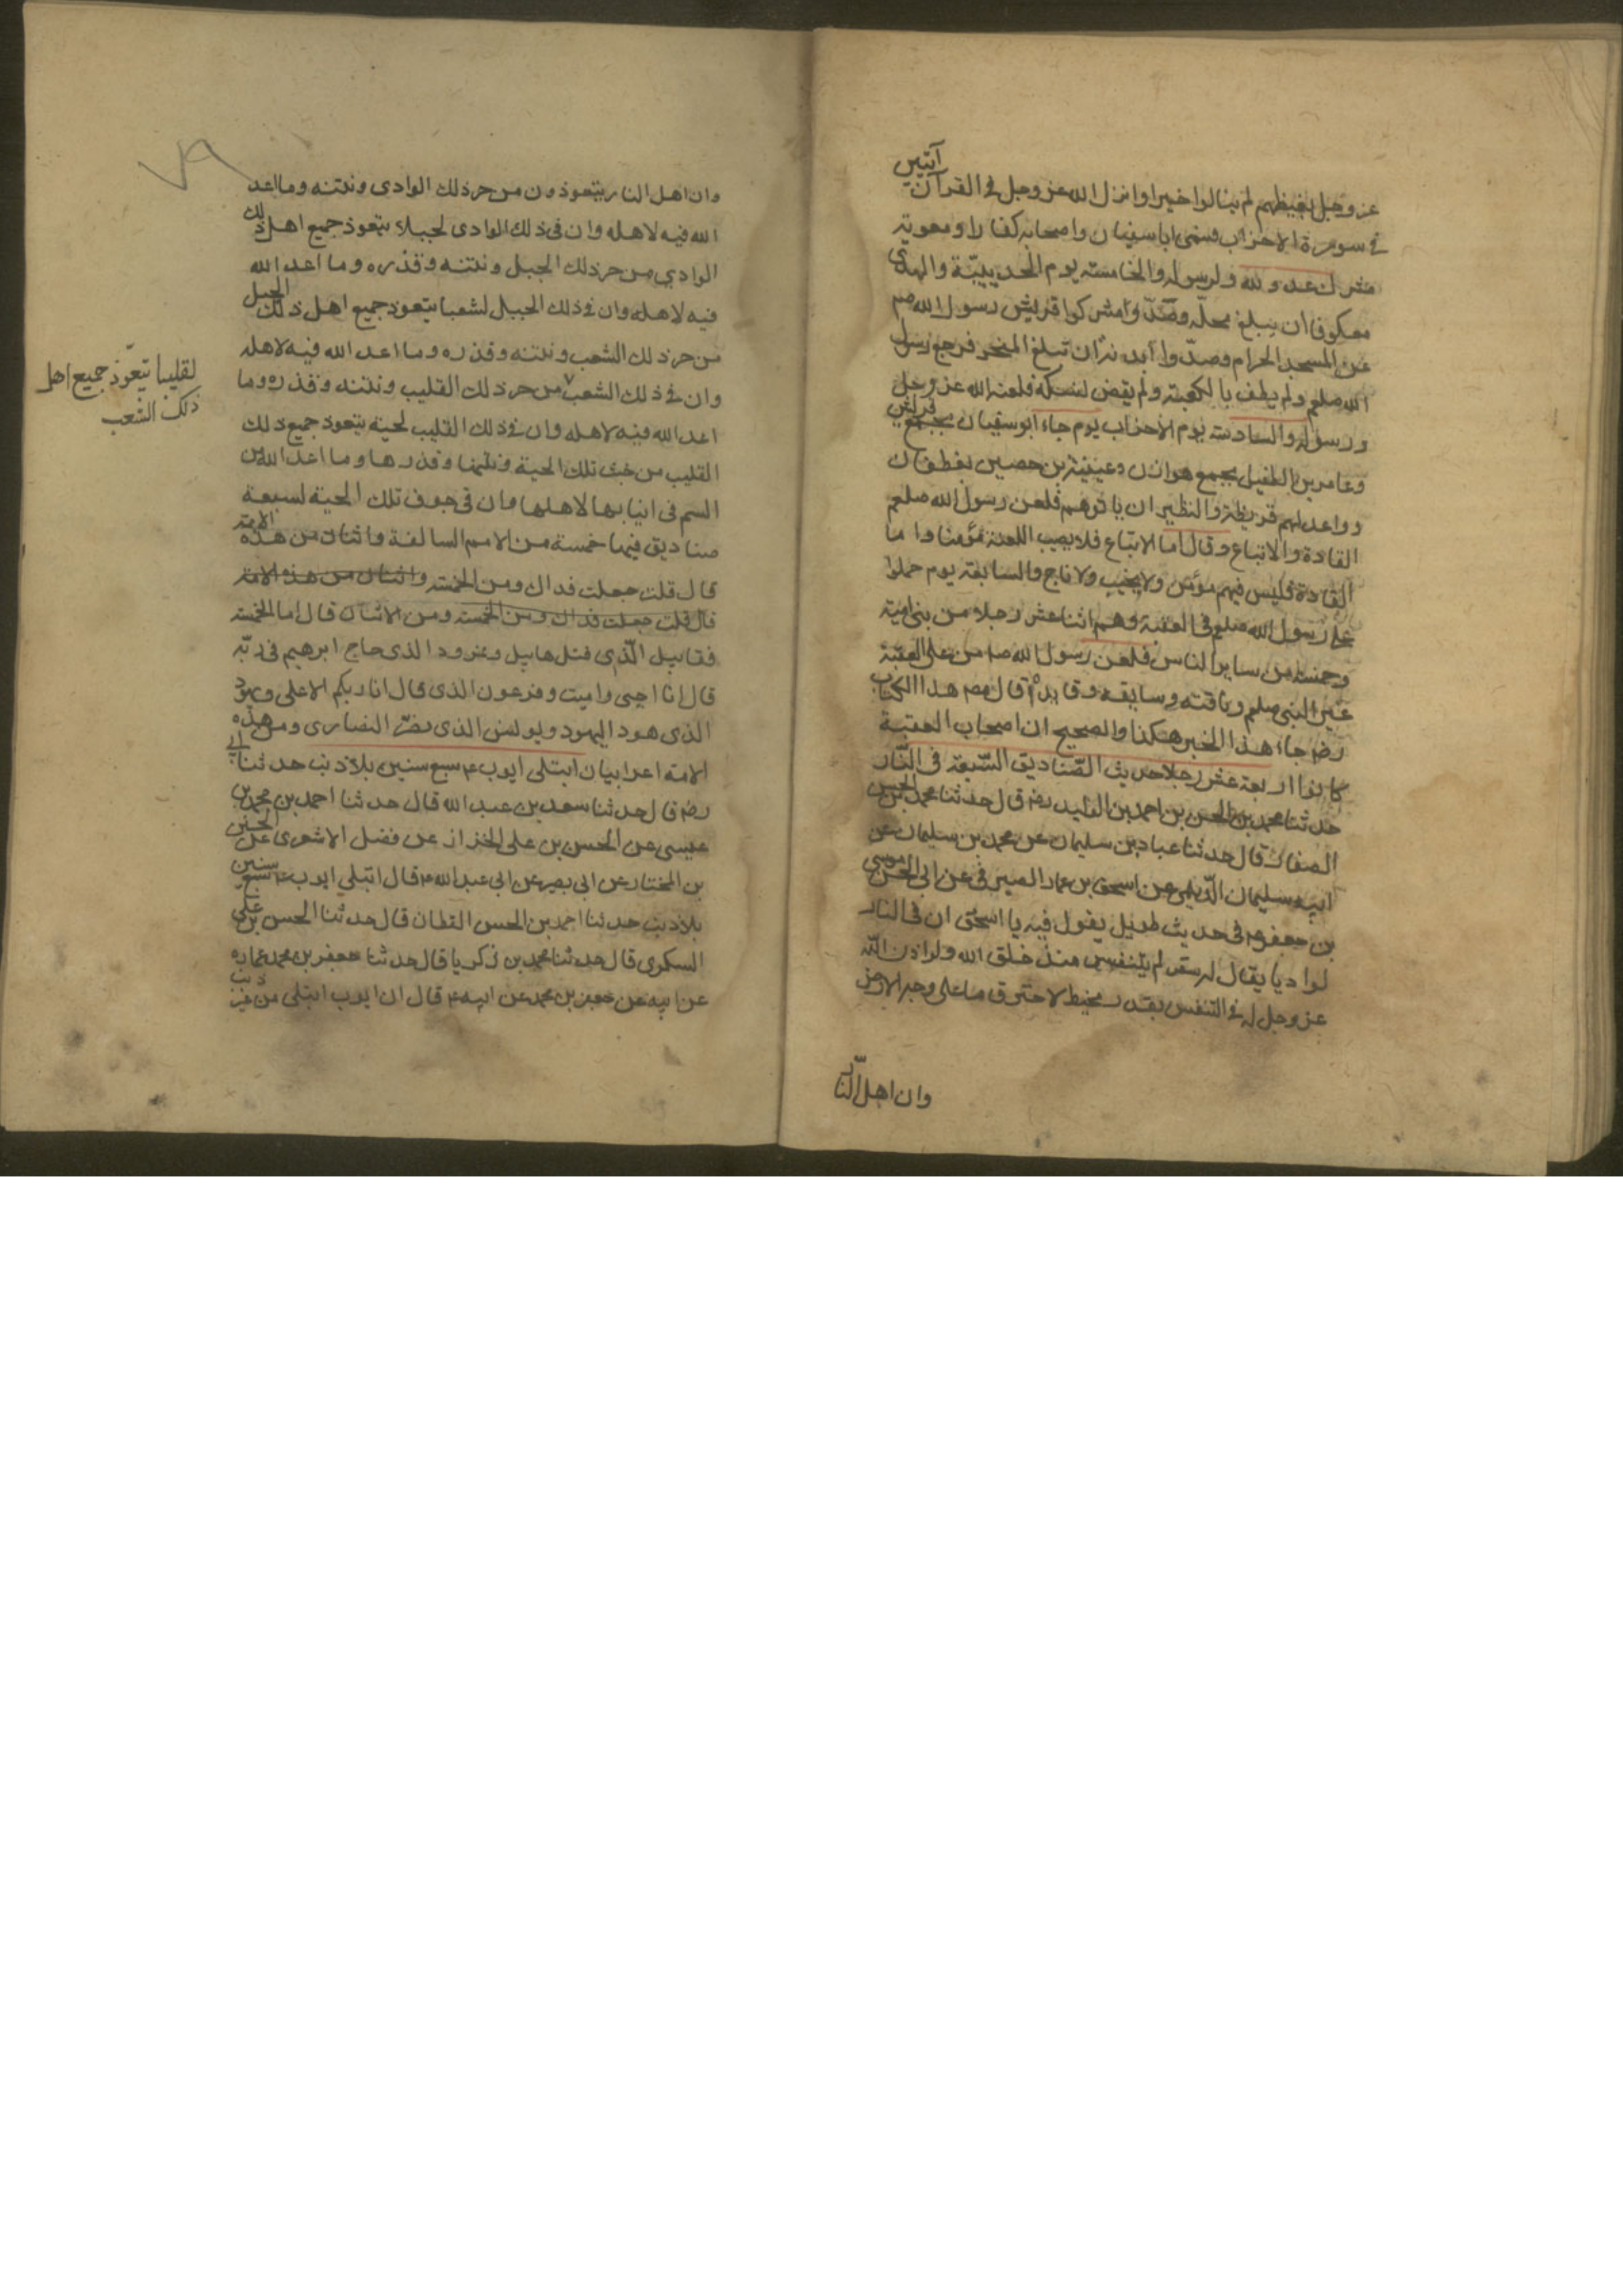 آيتين
عز وجل بغيظهم لم ينالوا خيرا وانزل الله عز وجل في القرآن
في سورة الاحزاب فسمى اباسفيان واصحابه كفارا ومعوية
مشرك عدو لله ولرسوله والخامسة يوم الحديبيّة والهدى
معكوفا ان يبلغ محلّه وصدّوا مشركوا قريش رسول الله صم
عن المسجد الحرام وصدّوا بدنه ان تبلغ المنحر فرجع رسول
الله صلعم ولم يطف بالكعبة ولم يقض نسكه فلعنه الله عز وجل
ورسوله والسادسة يوم الاحزاب يوم جاء ابوسفيان بجمع قريش
وعامر بن الطفيل بجمع هوازن وعيينة بن حصين بغطفان
وواعد لهم قريظة والنظير ان ياتوهم فلعن رسول الله صلعم
القادة والاتباع وقال اما الاتباع فلا يصيب اللعنة مؤمنا واما
القادة فليس فيهم مؤمن ولا نجيب ولا ناج والسابعة يوم حملوا
على رسول الله صلعم في العقبة وهم اثنا عشر رجلا من بني امية
وخمسة من ساير الناس فلعن رسول الله صم من على العقبة
غير النبي صلعم وناقته وسايقه وقايده قال مصم هذا الكتاب
رضم جاء هذا الخبر هكذا والصحيح ان اصحاب العقبة
كانوا اربعة عشر رجلا حديث الصّناديق السّبعة في النّار
حدثنا محمد بن الحسن بن احمد بن الوليد رضم قال حدثنا محمد بن الحسن
الصفار قال حدثنا عباد بن سليمان عن محمد بن سليمان عن
ابيه سليمان الدّيلمي عن اسحق بن عمار الصيرفي عن ابي الحسن موسى
بن جعفر ع في حديث طويل يقول فيه يا اسحق ان في النار
لواديا يقال له سقر لم يتنفس منذ خلق الله ولو اذن الله
عز وجل له في التنفس بقدر مخيط لاحترق ما على وجه الارض
وان اهل النّار
وان اهل النار يتعوذون من حر ذلك الوادى ونتنه وما اعد
الله فيه لاهله وان في ذلك الوادى لجبلا يتعوذ جميع اهل ذلك
الوادي من حر ذلك الجبل ونتنه وقذره وما اعد الله
فيه لاهله وان في ذلك الجبل لشعبا يتعوذ جميع اهل ذلك الجبل
من حر ذلك الشعب ونتنه وقذره وما اعد الله فيه لاهله
وان في ذلك الشعب من حر ذلك القليب ونتنه وقذره وما
لقليبا يتعّوذ جميع اهل
ذلك الشعب
اعد الله فيه لاهله وان في ذلك القليب لحية يتعوذ جميع ذلك
القليب من خبث تلك الحية ونتنها وقذرها وما اعد الله من
السم في انيابها لاهلها وان في جوف تلك الحية لسبعة
صناديق فيها خمسة من الامم السالفة واثنان من هذه الامة
قال قلت جعلت فداك ومن الخمسة واثنان من هذه الامة
قال قلت جعلت فداك ومن الخمسة ومن الاثنان قال اما الخمسة
فقابيل الّذي قتل هابيل ونمرود الذى حاج ابرهيم في ربّه
قال انا احيي واميت وفرعون الذى قال انا ربكم الاعلى ويهود
الذى هود اليهود وبولس الذى نصّر النصارى ومن هذه
الامة اعرابيان ابتلى ايوب ع سبع سنين بلا ذنب حدثنا ابي
رضم قال حدثنا سعد بن عبد الله قال حدثنا احمد بن محمد بن
عيسى عن الحسن بن على الخزاز عن فضل الاشعرى عن الحسين
بن المختار عن ابي بصير عن ابي عبد الله ع قال ابتلي ايوب ع سبع سنين
بلا ذنب حدثنا احمد بن الحسن القطان قال حدثنا الحسن بن علي
السكرى قال حدثنا محمد بن زكريا قال حدثنا جعفر بن محمد بن عمارة
عن ابيه عن جعفر بن محمد عن ابيه ع قال ان ايوب ابتلى من غير ذنب